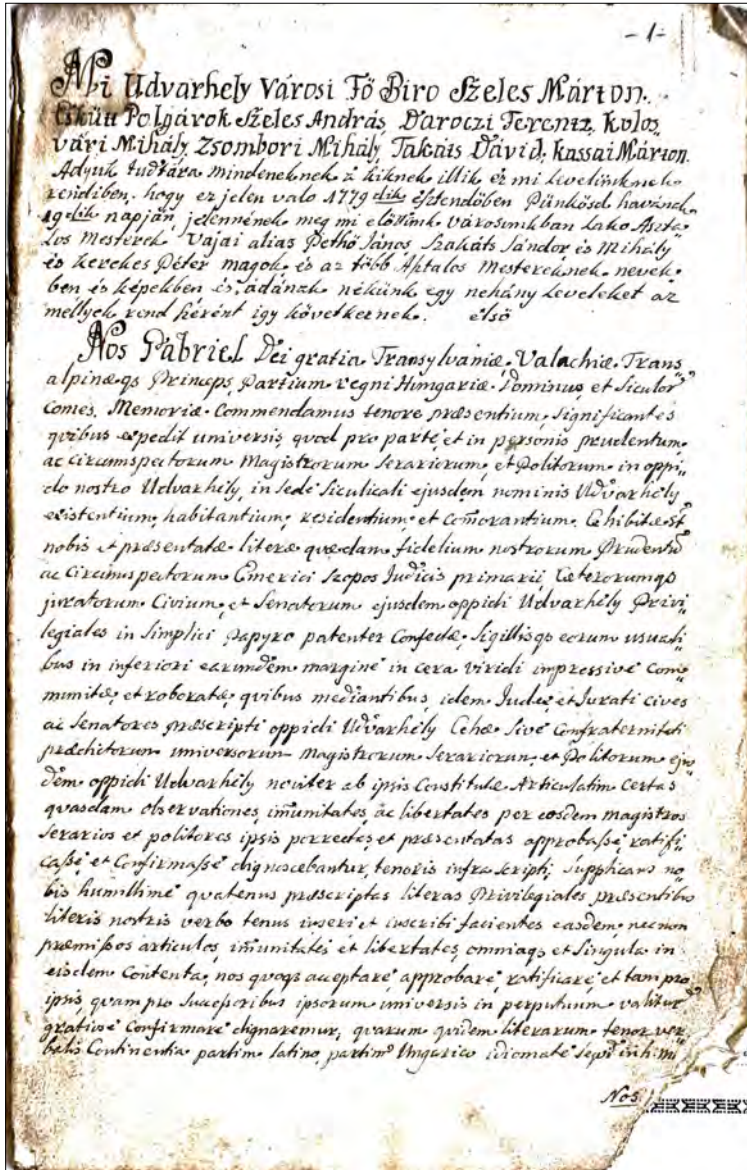 -1-
Mi Udvarhely Városi Fő Biro Szeles Márton.
Eskütt Polgárok Szeles András, Daroczi Ferentz, Kolos
vári Mihály, Zsombori Mihály, Takáts Dávid, Kassai Márton.
Adjuk tudtára mindeneknek a kiknek illik ez mi Levelünknek
rendiben, hogy ez jelen valo 1779dik esztendöben Pünkösd havának
19dik napján, jelennének meg mi elöttünk városunkban Lako Aszta„
Los Mesterek Vajai alias Pethő János, Szakáts Sándor, és Mihály
és Kerekes Péter magok, és az több Asztalos Mestereknek nevek„
ben és képekben és, adának nékünk egy nehány Leveleket az
méllyek rend szérént igy következnek. elsö
Nos Gabriel Dei gratia Transylvaniæ, Valachiæ Trans
alpinæqs Princeps, Partium regni Hungariæ Dominus, et Siculor
Comes. Memoriæ Commendamus tenore præsentium, significantes
quibus expedit universis, quod pro parte et in personis prudentum,
ac circumspectorum Magistrorum Serariorum, et Politorum in oppi„
do nostro Udvarhely, in sede Siculicali ejusdem nominis Udvarhely
existentium, habitantium, residentium, et comorantium. Exhibitæ st
nobis et præsentatæ literæ quædam fidelium nostrorum Prudentu
ac Circumspectorum Emerici Szopos Judicis primarii, Cæterorumqs
juratorum Civium, et Senatorum ejusdem oppidi Udvarhely Privi
legiales in Simplici Papyro patenter Confectæ, Sigillisqs eorum usuali
bus in inferiori earundem margine in cera viridi impressive Com„
munitæ, et roboratæ, quibus mediantibus, idem Judex et Jurati cives
ac Senatores præscripti oppidi Udvarhely Cehæ Sive Confraternitati
prædictorum universorum Magistrorum Serariorum, et Politorum eju„
dem oppidi Udvarhely noviter ab ipsis Constitutæ Articulatim Certas
quasdam observationes, imunitates, ac libertates per eosdem magistros
Serarios et politores ipsis porrectas, et præsentatas approbasse, ratifi„
casse, et Confirmasse dignoscebantur, tenoris infra scripti, Supplicans no„
bis humillime quatenus præscriptas literas Privilegiales præsentibus
literis nostris verbo tenus inseri et inscribi facientes easdem necnon
præmissos articulos, imunitates et libertates, omniaqs et Singula in
eisdem Contenta, nos quoqs acceptare, approbare, ratificare, et tam pro
ipsis, quam pro successoribus ipsorum universis in perpetuum valitur
gratiose Confirmare dignaremur, quarum quidem literarum tenor ver„
balis Continentia partim latino, partim Ungarico idiomate
Nos